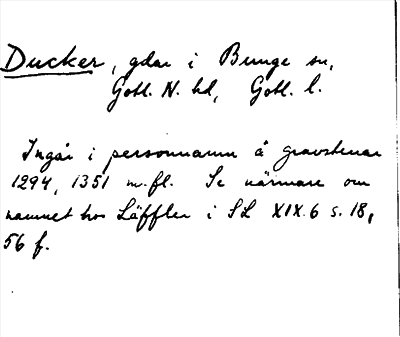 Ducker, gdar i Bunge sn,
Gotl. N. hd, Gotl. l.
Ingår i personnamn å gravstenar
1294, 1351 m.fl. Se närmare om
namnet hos Läffler i SL XIX.6 s. 18,
56 f.